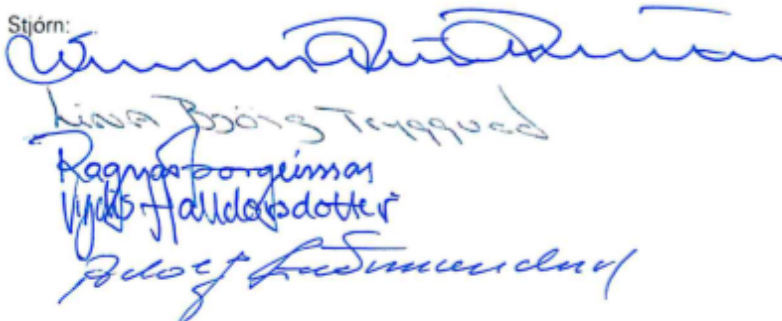 Stjórn:
Lina Björg Tryggvad
Ragnar Þorgeirsson
Vydís Halldórsdóttir
Adolf Guðmundsson